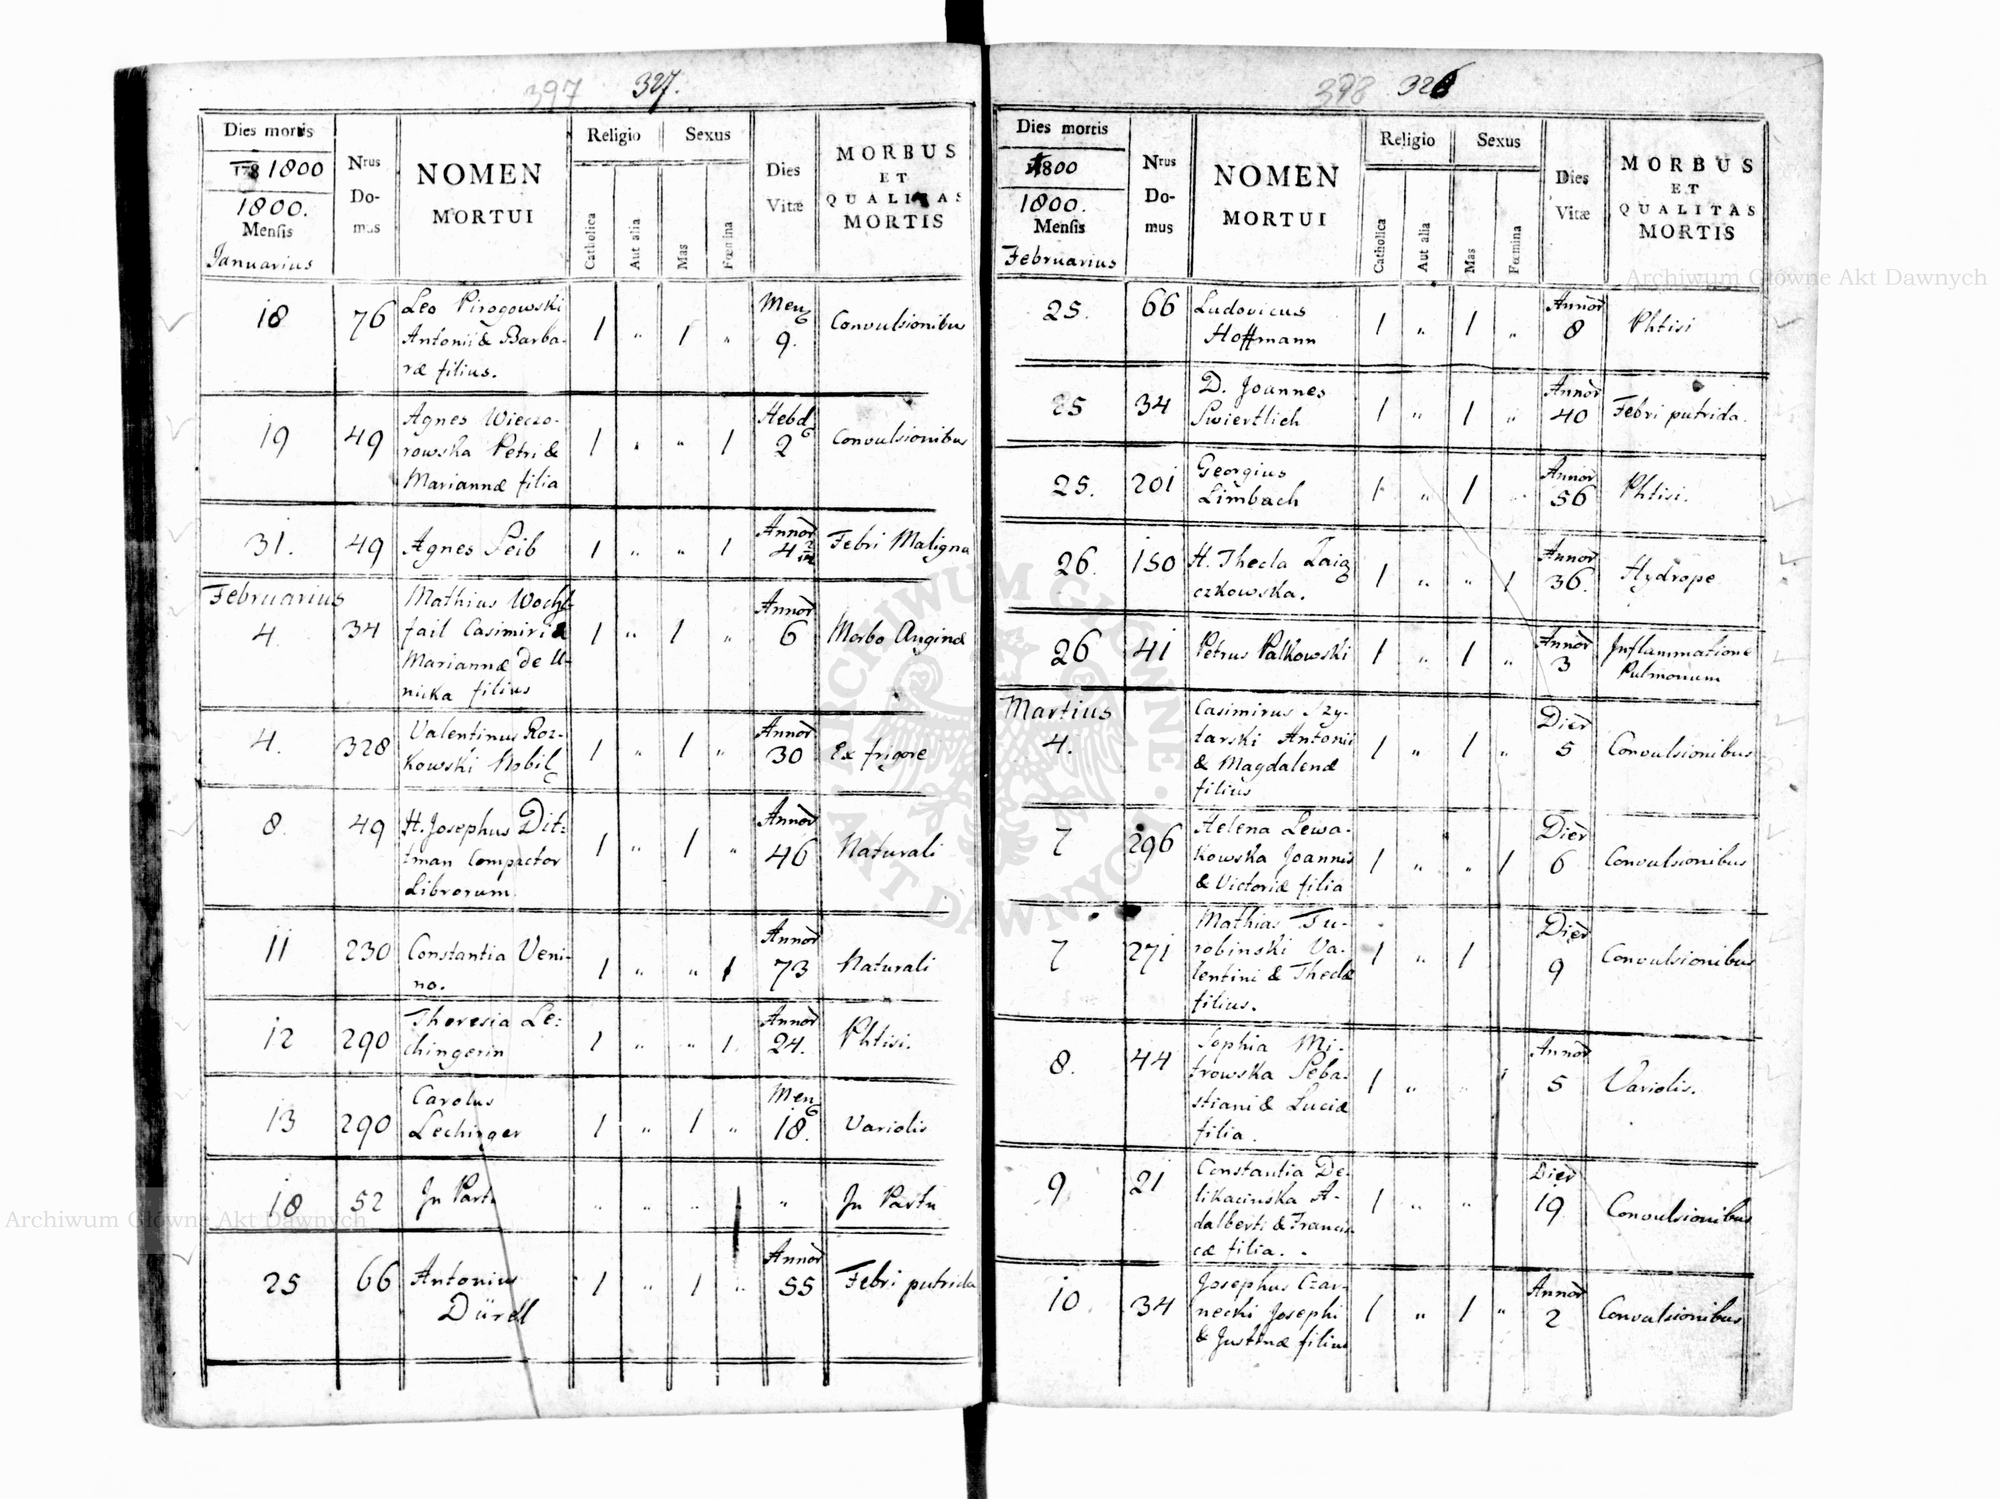 397 327.
Dies mortis
178 1800
1800.
Mensis
Januarius
Nrus
Do-
mus
NOMEN
MORTUI
Religio
Catholica
Aut alia
Sexus
Mas
Fœmina
Dies
Vitæ
MORBUS
ET
QUALITAS
MORTIS
18 76 Leo Pirogowski
Antonii & Barba-
ræ filius. 1 " 1 " Mens 9. Convulsionibus
19 49 Agnes Wieczo-
rowska Petri &
Mariannæ filia 1 " " 1 Hebd 2 Convulsionibus
31. 49 Agnes Leib 1 " " 1 Annor 4 Febri Maligna
Februarius
4. 34 Mathias
fail Casimiri &
Mariannæ de U-
nicka filius 1 " 1 " Annor 6 Morbo Anginæ
4. 328 Valentinus Roz-
kowski Nobil 1 " 1 " Annor 30 Ex frigore
8. 49 H. Josephus Dit:
tman Compactor
Librorum. 1 " 1 " Annor 46 Naturali
11 230 Constantia Veni-
no. 1 " " 1 Annor 73 Naturali
12 290 Theresia Le:
chingerin 1 " " 1. Annor 24. Phtisi.
13 290 Carolus
Lechinger 1 " 1 " Mens 18. Variolis
18 52 In Partu " " " " In Partu
25 66 Antonius
Dürdl 1 " 1 " Annor 55 Febri putrida
398 328
Dies mortis
1800
1800.
Mensis
Februarius
Nrus
Do-
mus
NOMEN
MORTUI
Religio
Catholica
Aut alia
Sexus
Mas
Fœmina
Dies
Vitæ
MORBUS
ET
QUALITAS
MORTIS
25. 66 Ludovicus
Hoffmann 1 " 1 " Annor 8 Phtisi
25 34 D. Joannes
Swiertlich 1 " 1 " Annor 40 Febri putrida.
25. 201 Georgius
Limbach 1 " 1 " Annor 56 Phtisi.
26. 150 H. Thecla Zaią
czkowska. 1 " " 1 Annor 36. Hydrope
26 41 Petrus Palkowski 1 " 1 " Annor 3 Inflammatione
Pulmonum
Martius
4. Casimirus Szy-
tarski Antonii
& Magdalenæ
filius 1 " 1 " Dier 5 Convulsionibus
7 296 Helena Lewa-
kowska Joannis
& Victoriæ filia 1 " " 1 Dier 6 Convulsionibus
7 271 Mathias Tu-
robinski Va-
lentini & Theclæ
filius. 1 " 1 Dier 9 Convulsionibus
8. 44 Sophia Mi-
trowska Seba-
stiani & Luciæ
filia. 1 " " 1 Annor 5 Variolis.
9 21 Constantia De-
likacinska A-
dalberti & Francis-
cæ filia. 1 " " 1 Dier 19 Convulsionibus
10. 34 Josephus Czar-
necki Josephi
& Justinæ filius 1 " 1 " Annor 2 Convulsionibus
ARCHIWUM GŁÓWNE AKT DAWNYCH
Archiwum Główne Akt Dawnych
Archiwum Główne Akt Dawnych